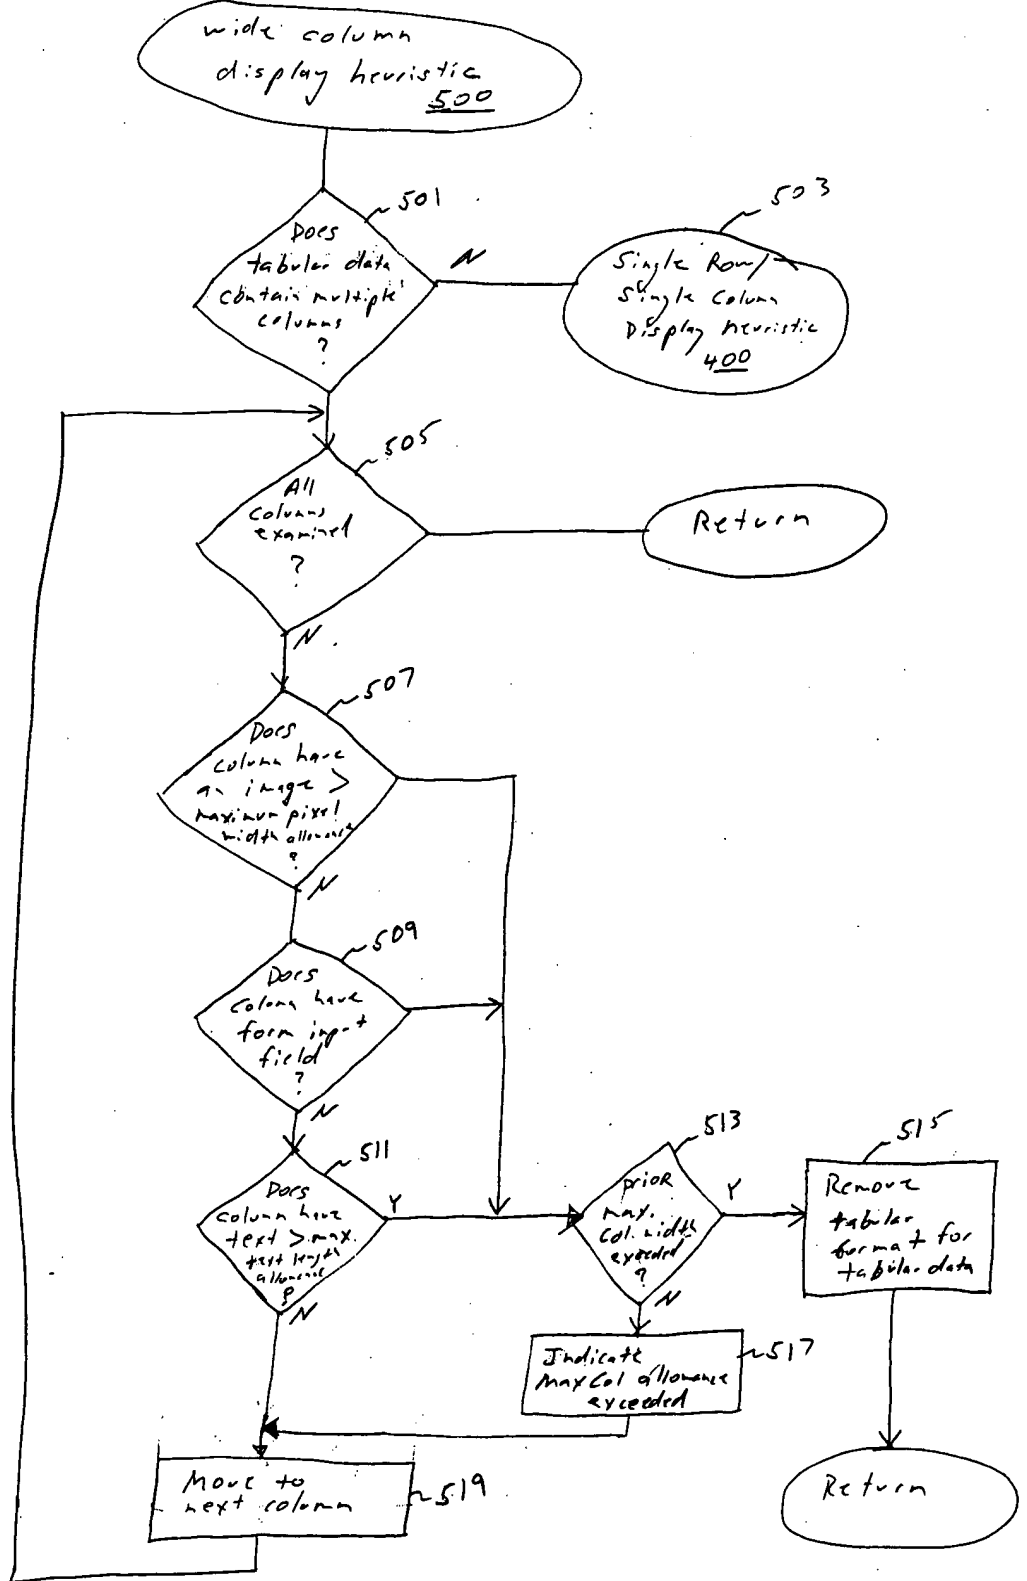 wide column
display heuristic
500
501
Does
tabular data
contain multiple
columns
?
N
503
Single Row/
Single Column
Display Heuristic
400
505
All
columns
examined
?
Return
N
507
Does
column have
an image >
maximum pixel
width allowance
?
N
509
Does
column have
form input
field
?
N
511
Does
column have
text > max.
text length
allowance
?
Y
N
513
prior
max.
Col. width
exceeded
?
Y
N
515
Remove
tabular
format for
tabular data
517
Indicate
Max Col allowance
exceeded
Return
519
Move to
next column